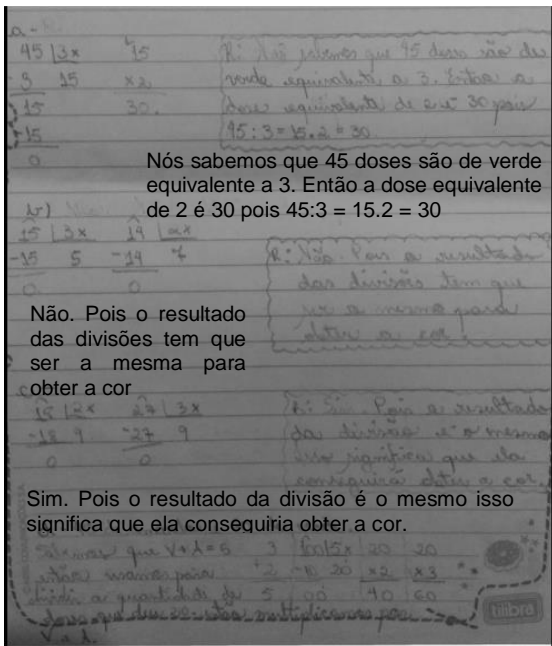 a-R.
45 |3x 15 R: Nós sabemos que 45 doses são de
-3 15 x2 verde equivalente a 3. Então a
15 30. dose equivalente de 2 é 30 pois
-15 45:3=15.2=30
0
Nós sabemos que 45 doses são de verde
equivalente a 3. Então a dose equivalente
de 2 é 30 pois 45:3 = 15.2 = 30
b)
15 |3x 14 |2x
-15 5 -14 7 R: Não. Pois o resultado
0 0 das divisões tem que
ser a mesma para
obter a cor.
Não. Pois o resultado
das divisões tem que
ser a mesma para
obter a cor
18 |2x 27 |3x R: Sim. Pois o resultado
-18 9 -27 9 da divisão é o mesmo
0 0 isso significa que ela
conseguirá obter a cor.
Sim. Pois o resultado da divisão é o mesmo isso
significa que ela conseguiria obter a cor.
Sabemos que V+A=5 3 100|5x 20 20
então usamos para +2 -10 20 x2 x3
dividir a quantidade de 5 00 40 60
que deu 20. então multiplicamos por
V e A.
tilibra